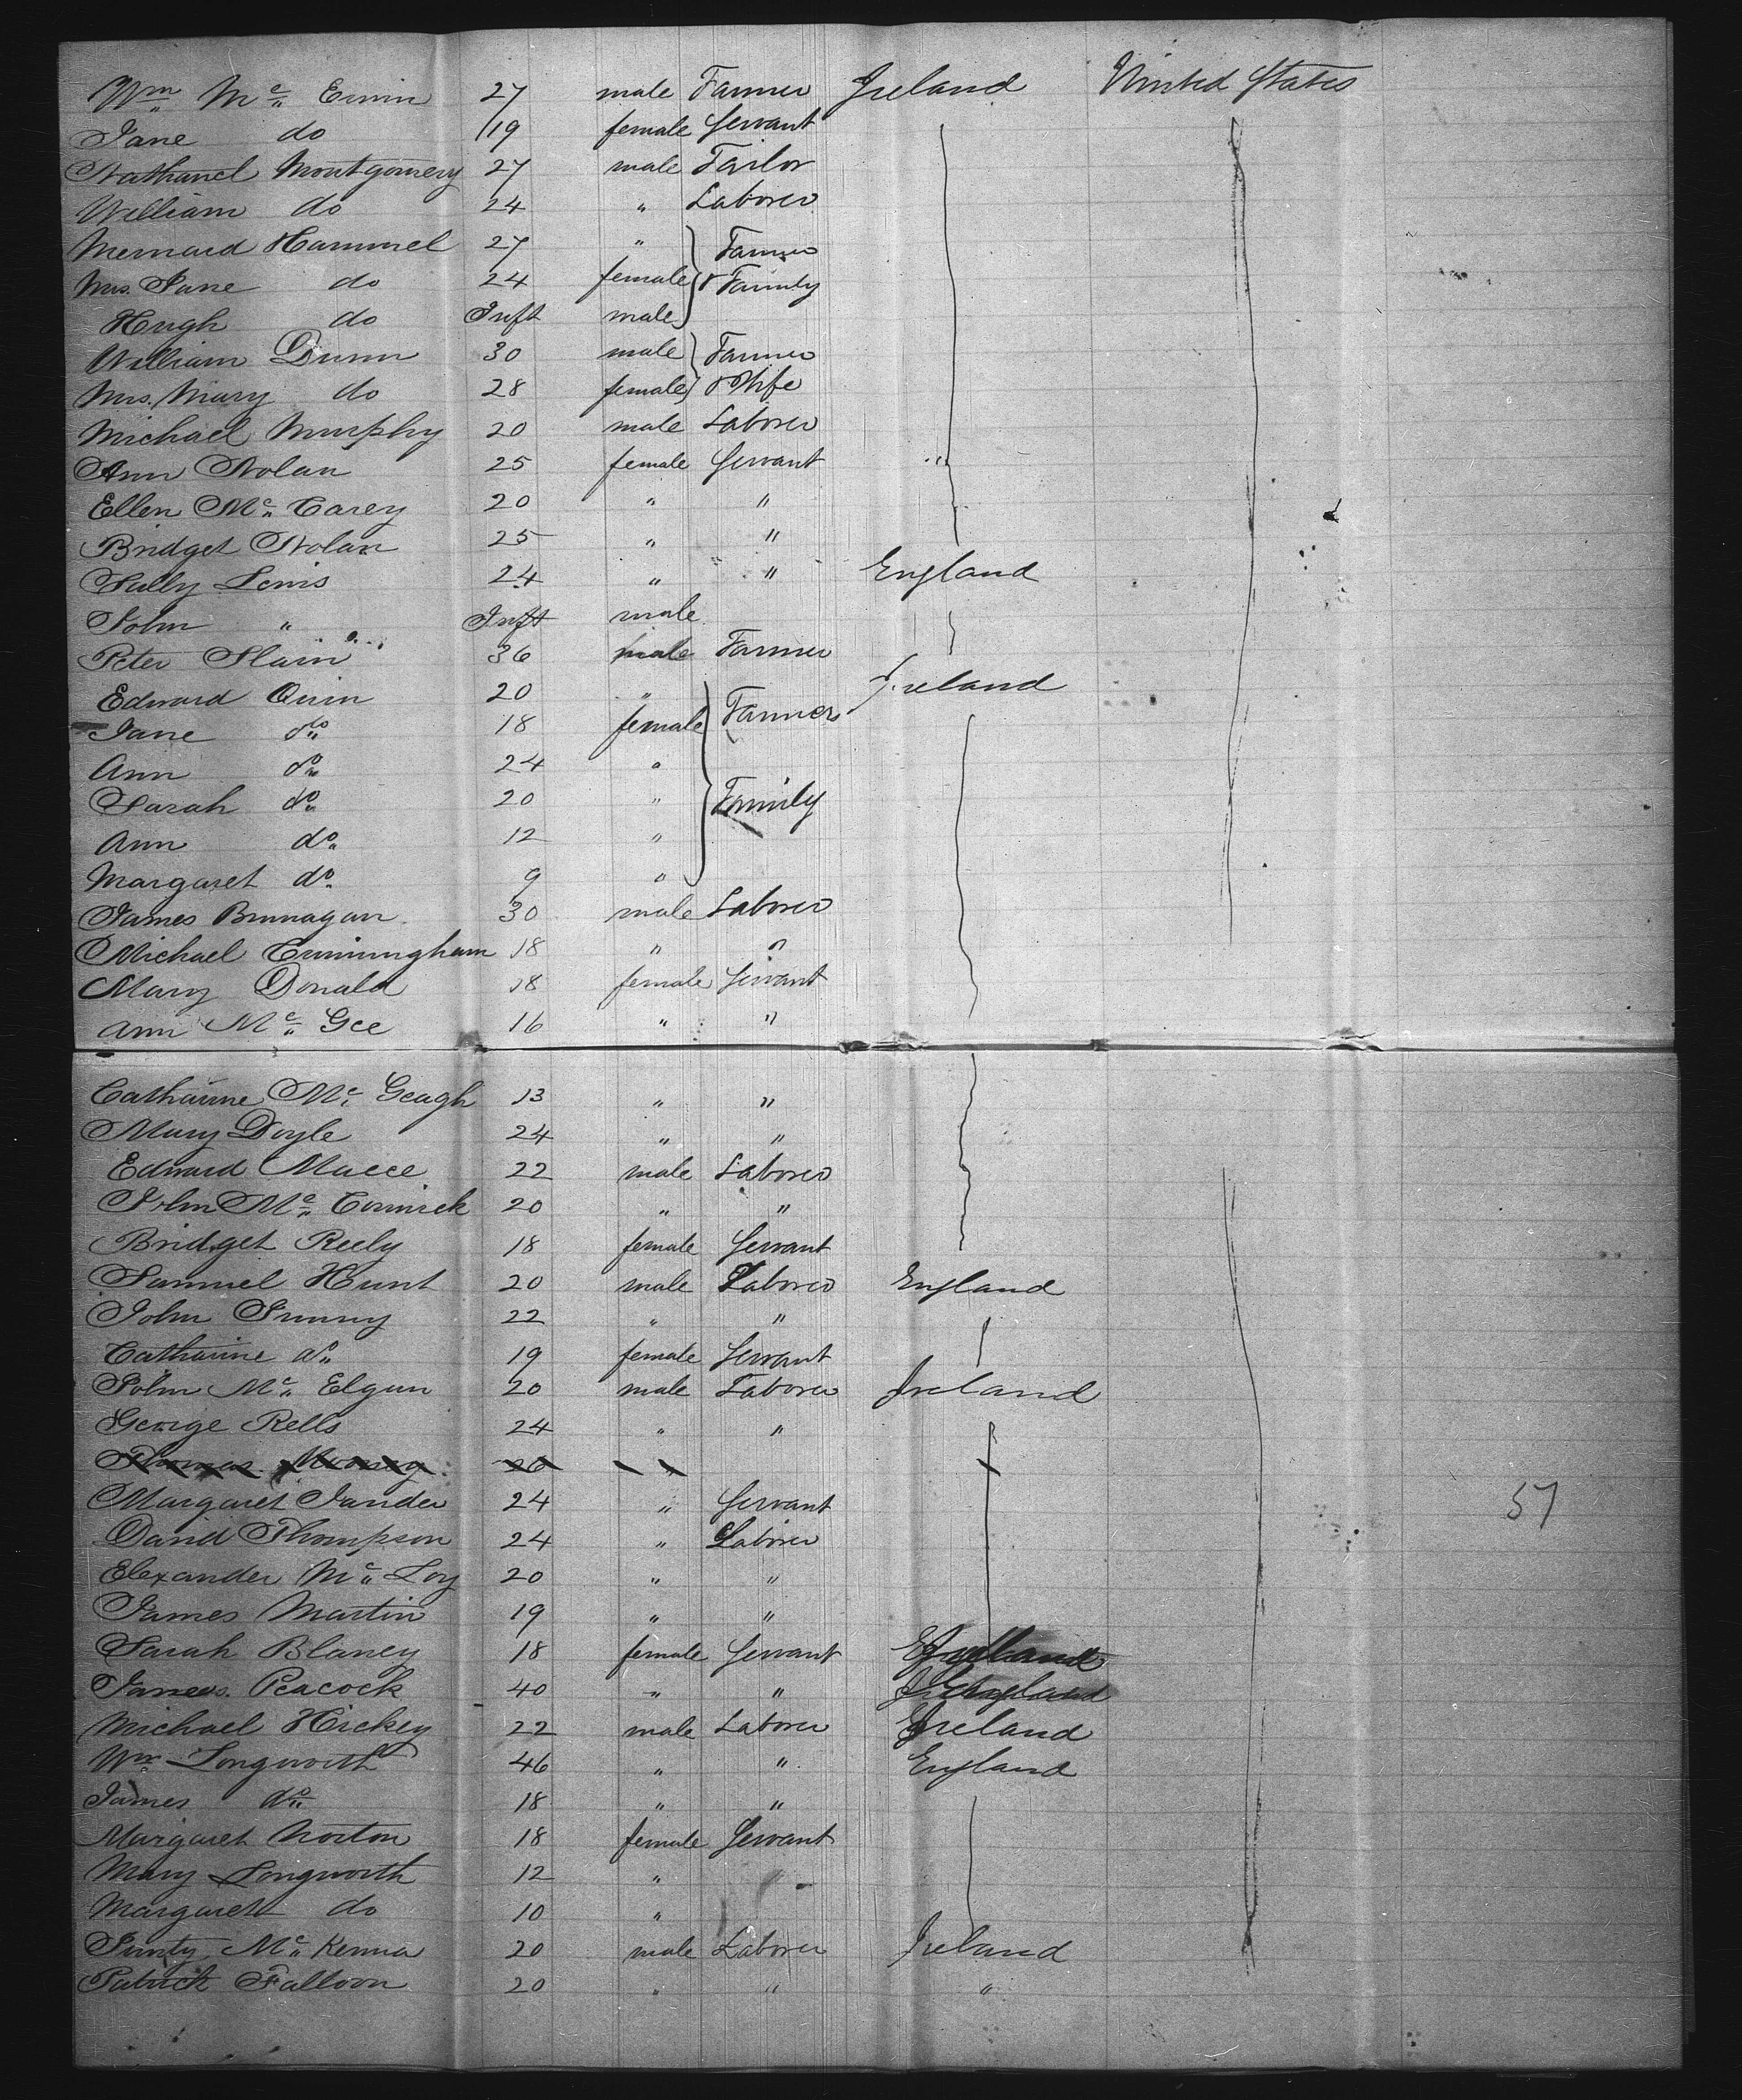 Wm Mc Ervin 27 male Farmer Ireland United States
Jane do 19 female Servant
Nathanel Montgomery 27 male Tailor
William do 24 " Laborer
Mernard Hammel 27 " Farmer
Mrs. Jane do 24 female & Family
Hugh do Inft male
William Dunn 30 male Farmer
Mrs. Mary do 28 female & Wife
Michael Murphy 20 male Laborer
Ann Nolan 25 female Servant
Ellen Mc Carey 20 " "
Bridget Nolan 25 " "
Sally Lewis 24 " " England
John " Inft male
Peter Slain 36 male Farmer
Edward Quin 20 " Ireland
Jane do 18 female Farmers
Ann do 24 "
Sarah do 20 " Family
Ann do 12 "
Margaret do 9 "
James Brunagan 30 male Laborer
Michael Cunningham 18 " "
Mary Donald 18 female Servant
Ann Mc Gee 16 " "
Catharine Mc Geagh 13 " "
Mary Doyle 24 " "
Edward Macee 22 male Laborer
John Mc Cormick 20 " "
Bridget Reely 18 female Servant
Samuel Hunt 20 male Laborer England
John Sunny 22 " "
Catharine do 19 female Servant
John Mc Elgun 20 male Laborer Ireland
George Rells 24 " "
Thomas 26 "
Margaret Jander 24 " Servant 57
David Thompson 24 " Laborer
Elexander Mc Loy 20 " "
James Martin 19 " "
Sarah Blaney 18 female Servant
James Peacock 40 " " England
Michael Hickey 22 male Laborer Ireland
Wm Longworth 46 " " England
James do 18 " "
Margaret Norton 18 female Servant
Mary Longworth 12 "
Margaret do 10 "
Mc Kenna 20 male Laborer Ireland
Patrick Falloon 20 " " "